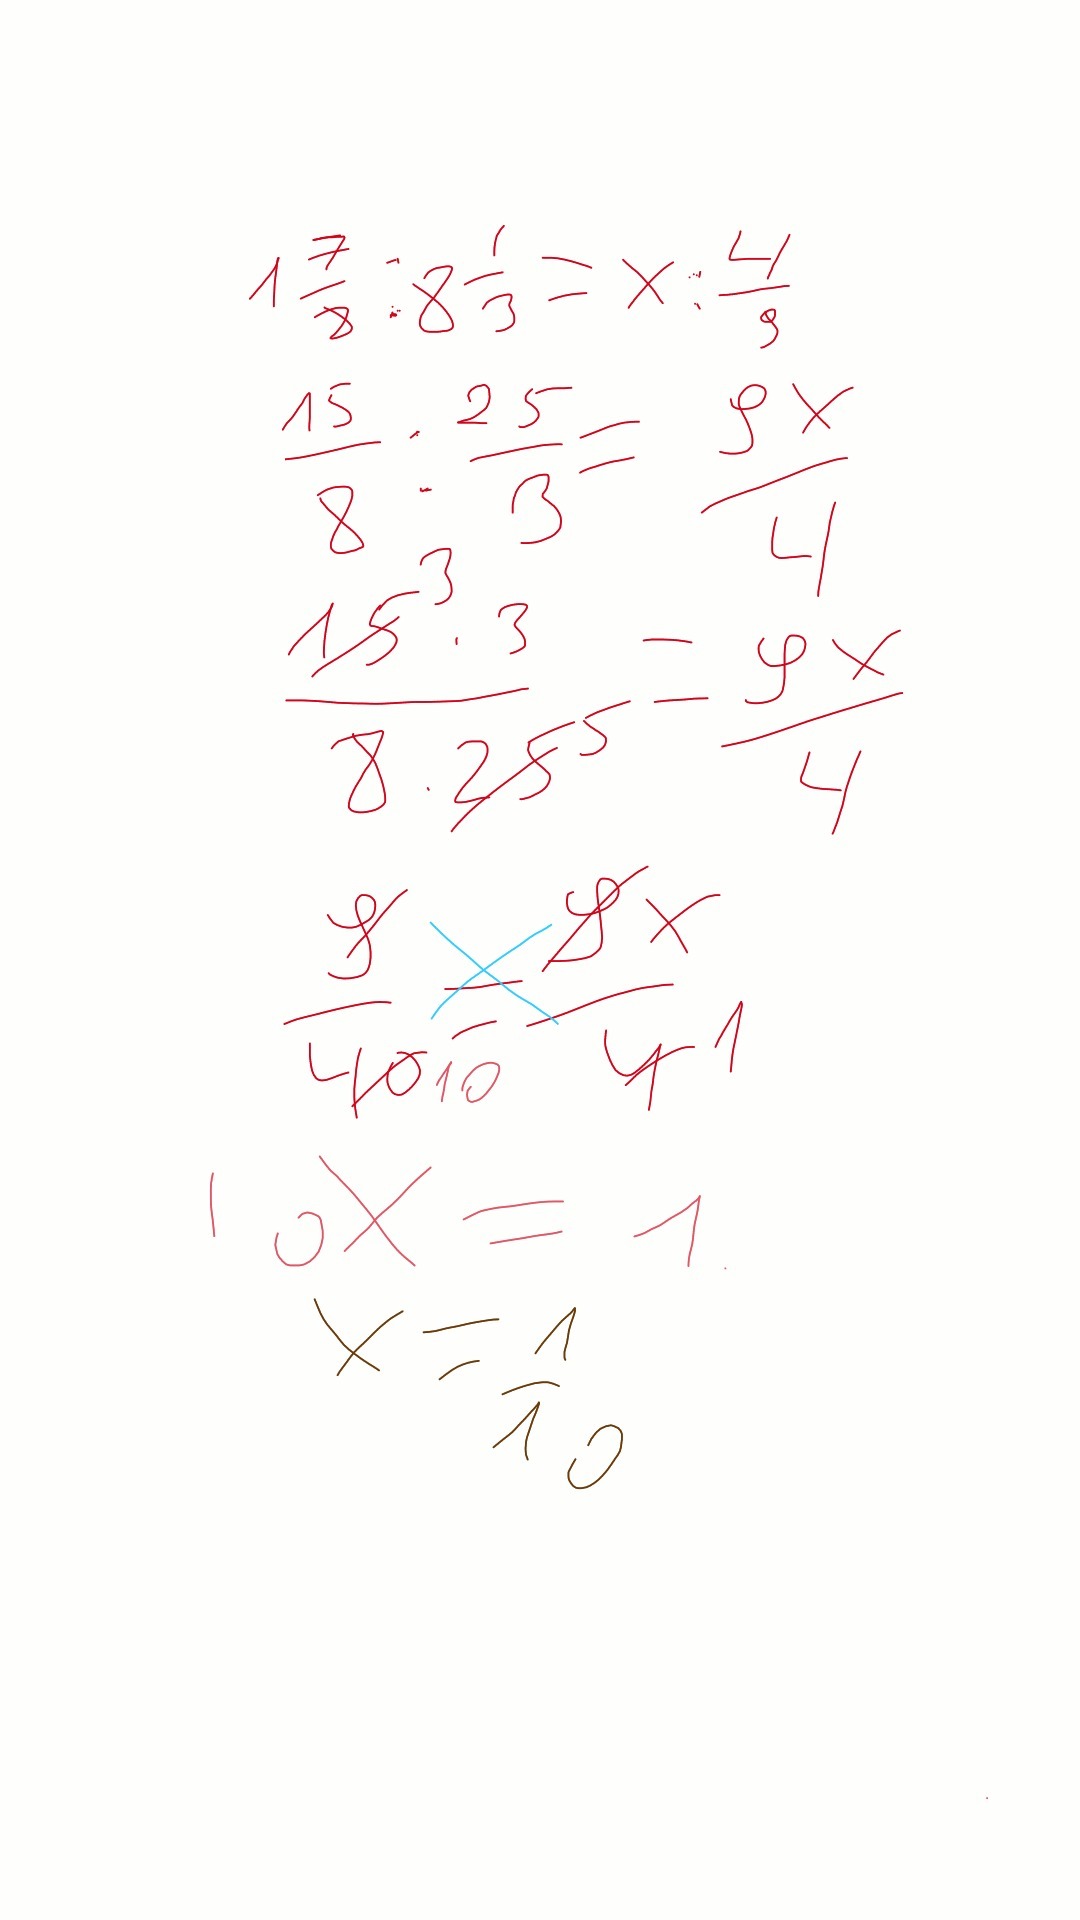 1 7/8 : 8 1/3 = x : 4/9
15/8 : 25/3 = 9x/4
15 3 · 3 / 8 · 25 5 = 9x/4
9/40 10 = 9x/4 1
10x = 1
x = 1/10